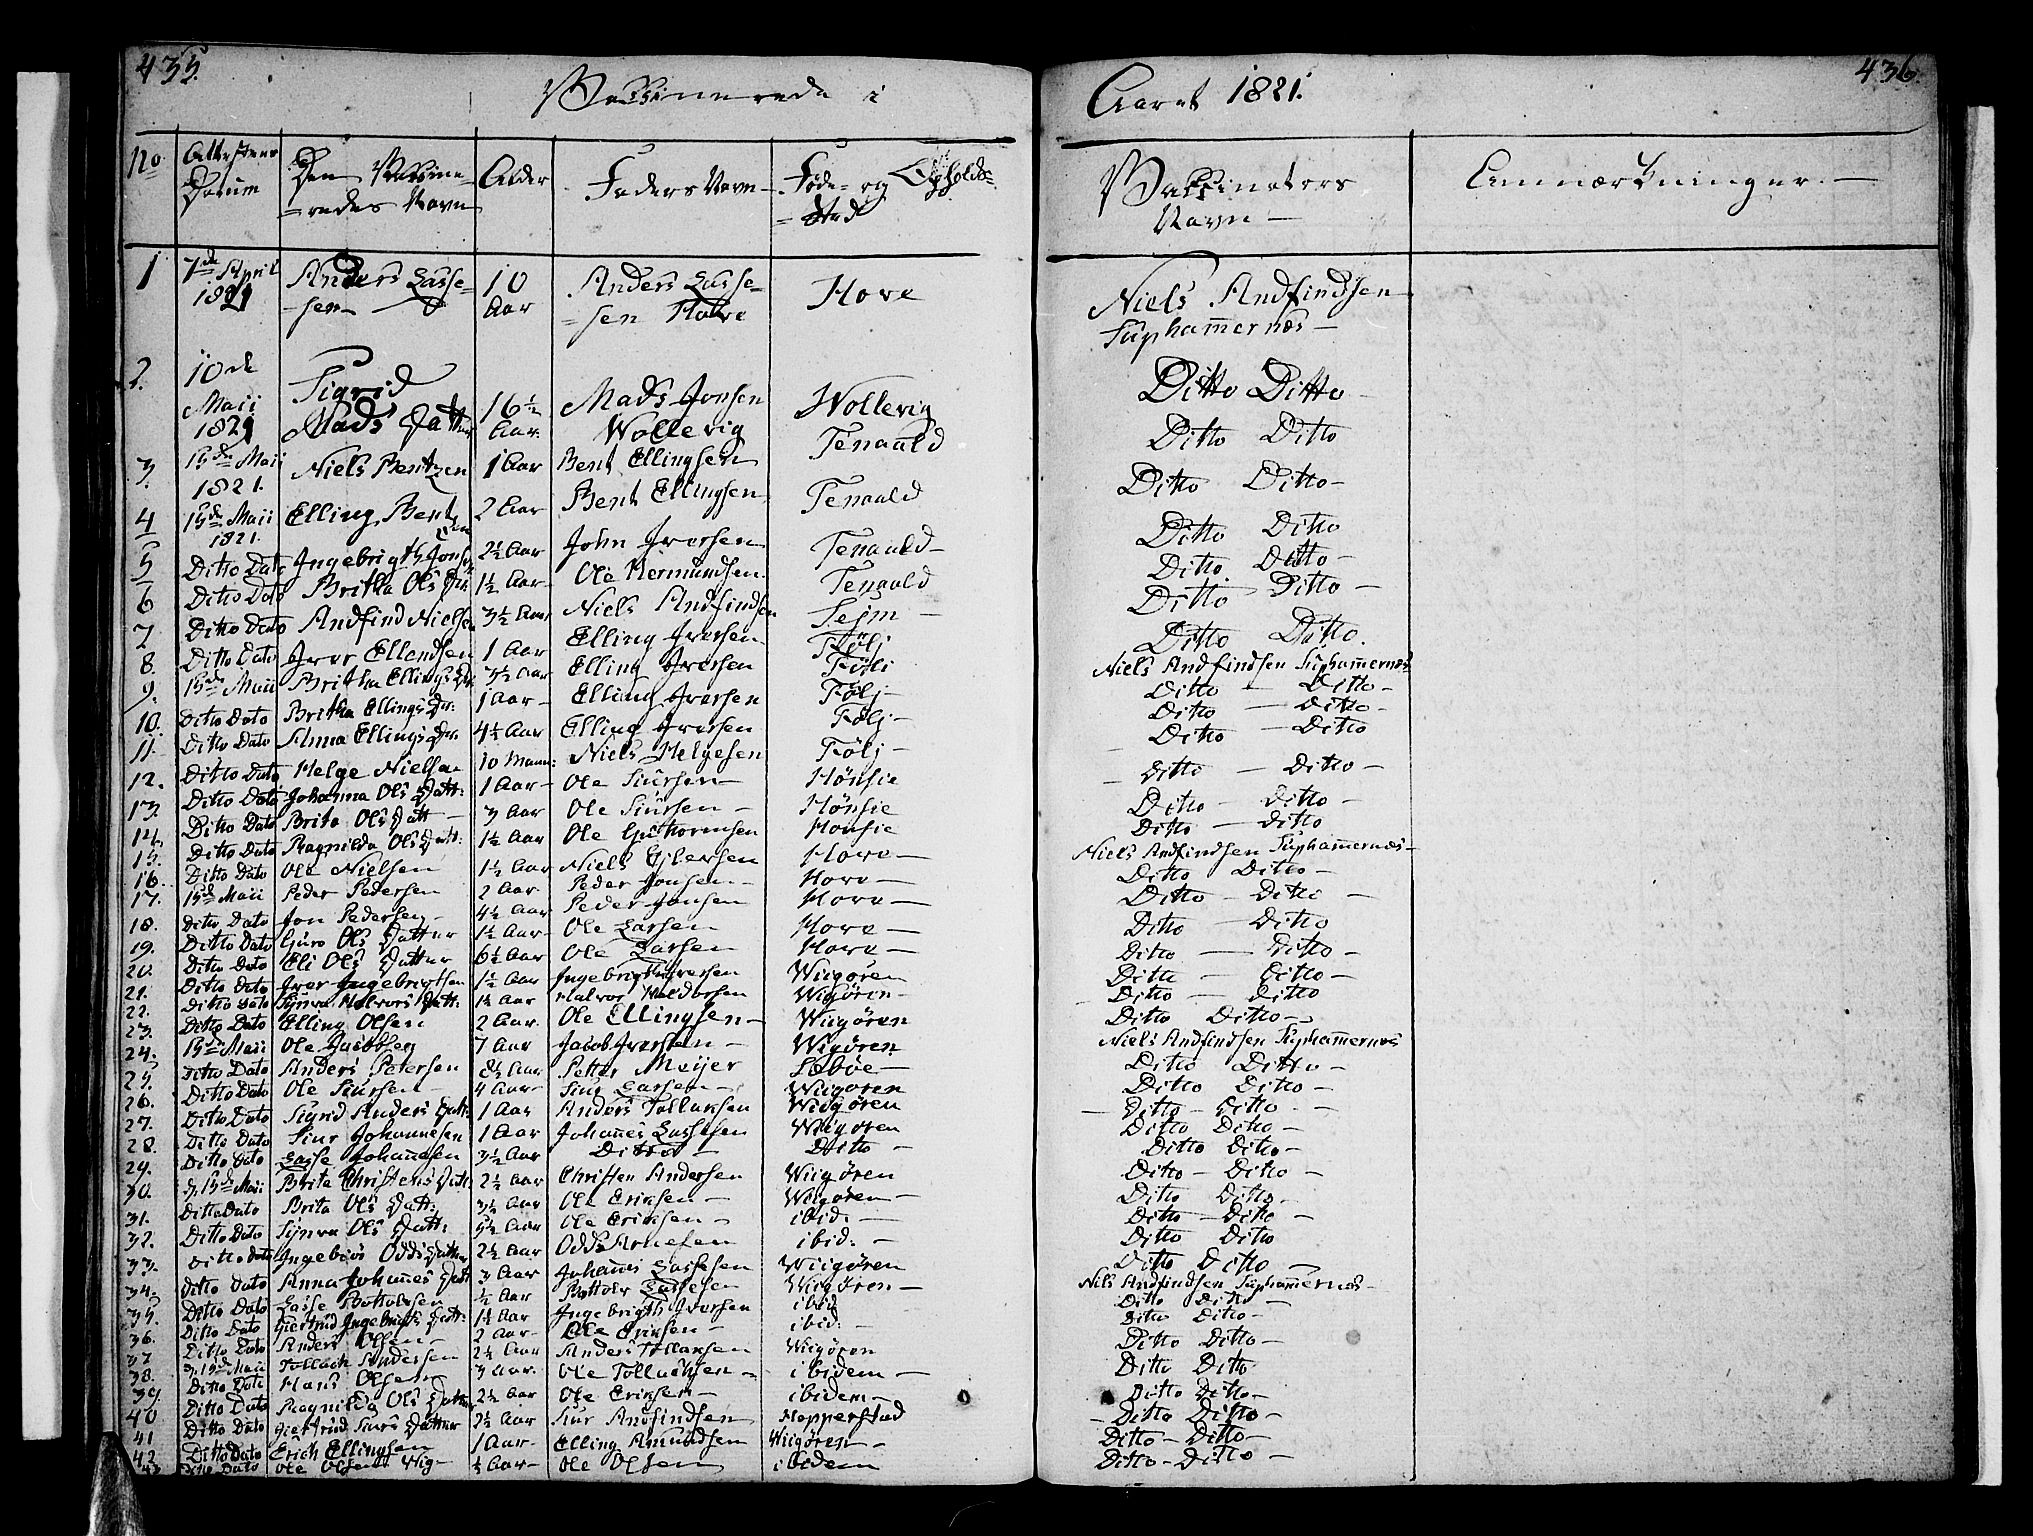 435.
Vaksinerede i
No Attestens Datum Den Vaksineredes Navn Alder Faders Navn Føde- og Opholds-Sted
1 7de April 1821 Anders Lassesen 10 Aar Anders Lassesen Hove Hove
2. 10de Maii 1821 Sigrid Mads Datter 16½ Aar. Mads Jonsen Wollevig Wollevig
3. 15de Maii 1821. Niels Bentzen 1 Aar Bent Ellingsen Tenaald
4 15de Maii 1821. Elling Bentsen 2 Aar Bent Ellingsen Tenaald
5 Ditto Dato Ingebrigth Jonsen 2½ Aar John Iversen Tenaald
6 Ditto Dato Britha Ols Dr 1½ Aar Ole Hermundsen Tenaald
7 Ditto Dato Andfind Nielsen 3½ Aar Niels Andfindsen Tejm
8. Ditto Dato Iver Ellendsen 1 Aar Elling Iversen Følj
9. 15de Maii Britha Ellings Dr 3½ Aar Elling Iversen Følj
10. Ditto Dato Britha Ellings Dr. 1 Aar Elling Iversen Følj
11. Ditto Dato Anna Ellings Dr. 4½ Aar Elling Iversen Følj
12. Ditto Dato Helge Nielsen 10 Maan: Niels Helgesen Følj
13. Ditto Dato Johanna Ols Datt: 1 Aar Ole Siursen Hønsie
14. Ditto Dato Brita Ols Datt 3 Aar Ole Siursen Hønsie
15. Ditto Dato Ragnilda Ols Datt: 1½ Aar Ole Guthormsen Honsie
16. Ditto Dato Ole Nielsen 1½ Aar Niels Eilersen Hove
17. 15de Maii Peder Pedersen 2 Aar Peder Jonsen Hove
18. Ditto Dato Jon Pedersen 4½ Aar Peder Jonsen Hove
19. Ditto Dato Guro Ols Datter 1½ Aar Ole Larsen Hove
20. Ditto Dato Eli Ols Datter 6½ Aar Ole Larsen Hove
21. Ditto Dato Iver Ingebrigtsen 1½ Aar Ingebrigt Iversen Wiigøren
22. Ditto Dato Synva Halvors Datt: 1½ Aar Halvor Haldorsen Wigøren
23. Ditto Dato Elling Olsen 2 Aar. Ole Ellingsen Wiigøren
24. 15de Maii Ole Jacobsen 7 Aar Jacob Iversen Wigøren
25. Ditto Dato Anders Petersen 8½ Aar Petter Meijer Sæbøe
26. Ditto Dato Ole Siursen 4 Aar Siur Larsen Wiigøren
27. Ditto Dato Sigrid Anders Datt: 1 Aar Anders Tollaksen Wiigøren
28. Ditto Dato Siur Johannesen 1 Aar Johanes Lassesen Wiigøren
29. Ditto Dato Lasse Johanesen 3½ Aar Ditto Ditto
30. 15de Maii Brita Christens Datt: 2½ Aar Christen Andersen Wiigøren
31. Ditto Dato Brita Ols Datt: 3½ Aar Ole Ericsen Wiigøren
32. Ditto Dato Synva Ols Datt: 5½ Aar Ole Ericksen ibid:
33. Ditto Dato Ingebiør Odds Datter 2½ Aar Odds Arnesen ibid:
34. Ditto Dato Anna Johanes Datt 3 Aar Johanes Lassesen Wiigøren
35. Ditto Dato Lasse Bottolvsen ½ Aar Bottolv Lassesen Wiigøren
36. Ditto Dato Giertrud Ingebrigts Datt: 1½ Aar Ingebrigth Iversen ibid
37. Ditto Dato Anders Olsen 2 Aar Ole Ericksen ibid:
38. 15de Maii Tollach Andersen 2½ Aar Anders Tollaksen Wiigøren
39. Ditto Dato Hans Olsen 3 Aar. Ole Tollachsen ibidem
40 Ditto Dato Ragnilda Ols Datter 2½ Aar Ole Ericksen ibidem
41 Ditto Dato Giertrud Siurs Datter 2½ Aar Siur Andfindsen Hopperstad
42 Ditto Dato Erich Ellingsen 1 Aar Elling Amundsen Wiigøren
43 Ditto Dato Ole Olsen Wig ½ Aar Ole Olsen ibidem
436
Aaret 1821.
Vaksinators Navn Anmærkninger.
Niels Andfindsen
Suphammernæs
Ditto Ditto
Ditto Ditto
Ditto Ditto
Ditto Ditto
Ditto Ditto
Ditto Ditto
Ditto Ditto.
Niels Andfindsen Suphamernæs
Ditto Ditto
Ditto Ditto
Ditto Ditto
Ditto Ditto
Ditto Ditto
Ditto Ditto
Niels Andfindsen Suphamernæs
Ditto Ditto
Ditto Ditto
Ditto Ditto
Ditto Ditto
Ditto Ditto
Ditto Ditto
Ditto Ditto
Niels Andfindsen Suphamernæs
Ditto Ditto
Ditto Ditto
Ditto Ditto
Ditto Ditto
Ditto Ditto
Ditto Ditto
Ditto Ditto
Ditto Ditto
Ditto Ditto
Ditto Ditto
Nils Andfindsen Suphamernæs
Ditto Ditto
Ditto Ditto
Ditto Ditto
Ditto Ditto
Ditto Ditto
Ditto Ditto
Ditto Ditto
Ditto Ditto